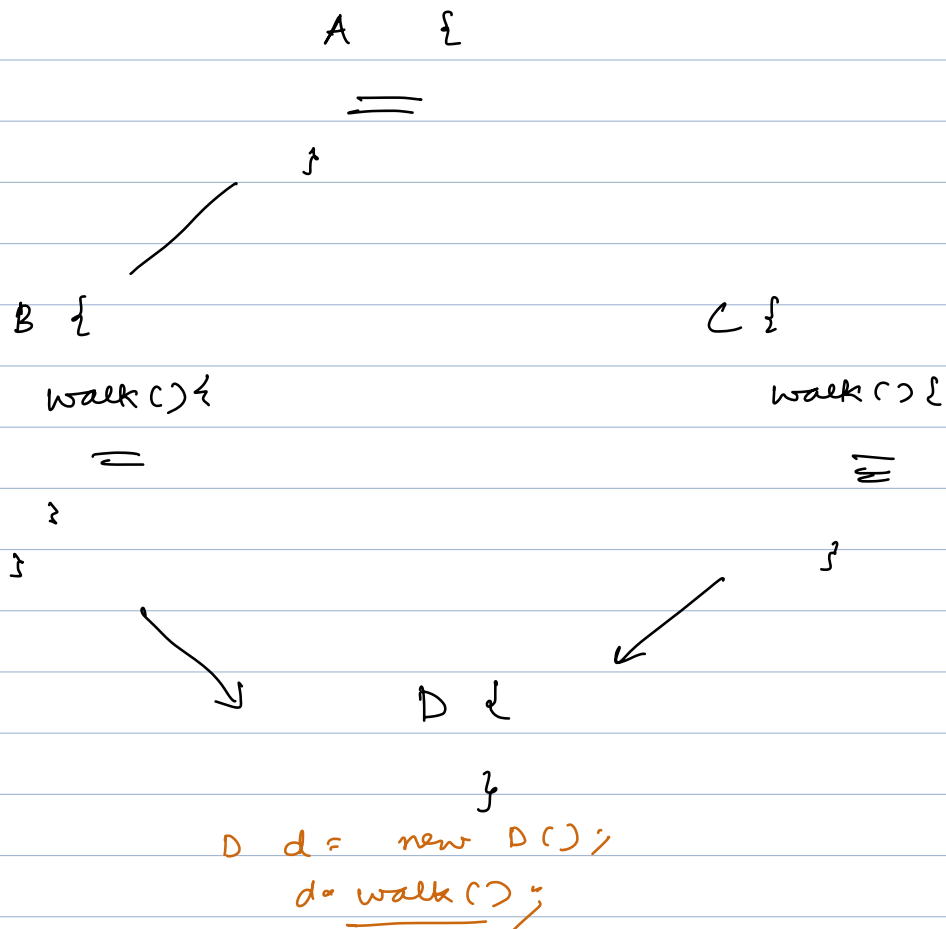 A {
}
B { C {
walk() { walk() {
}
} }
D {
}
D d = new D();
d. walk();